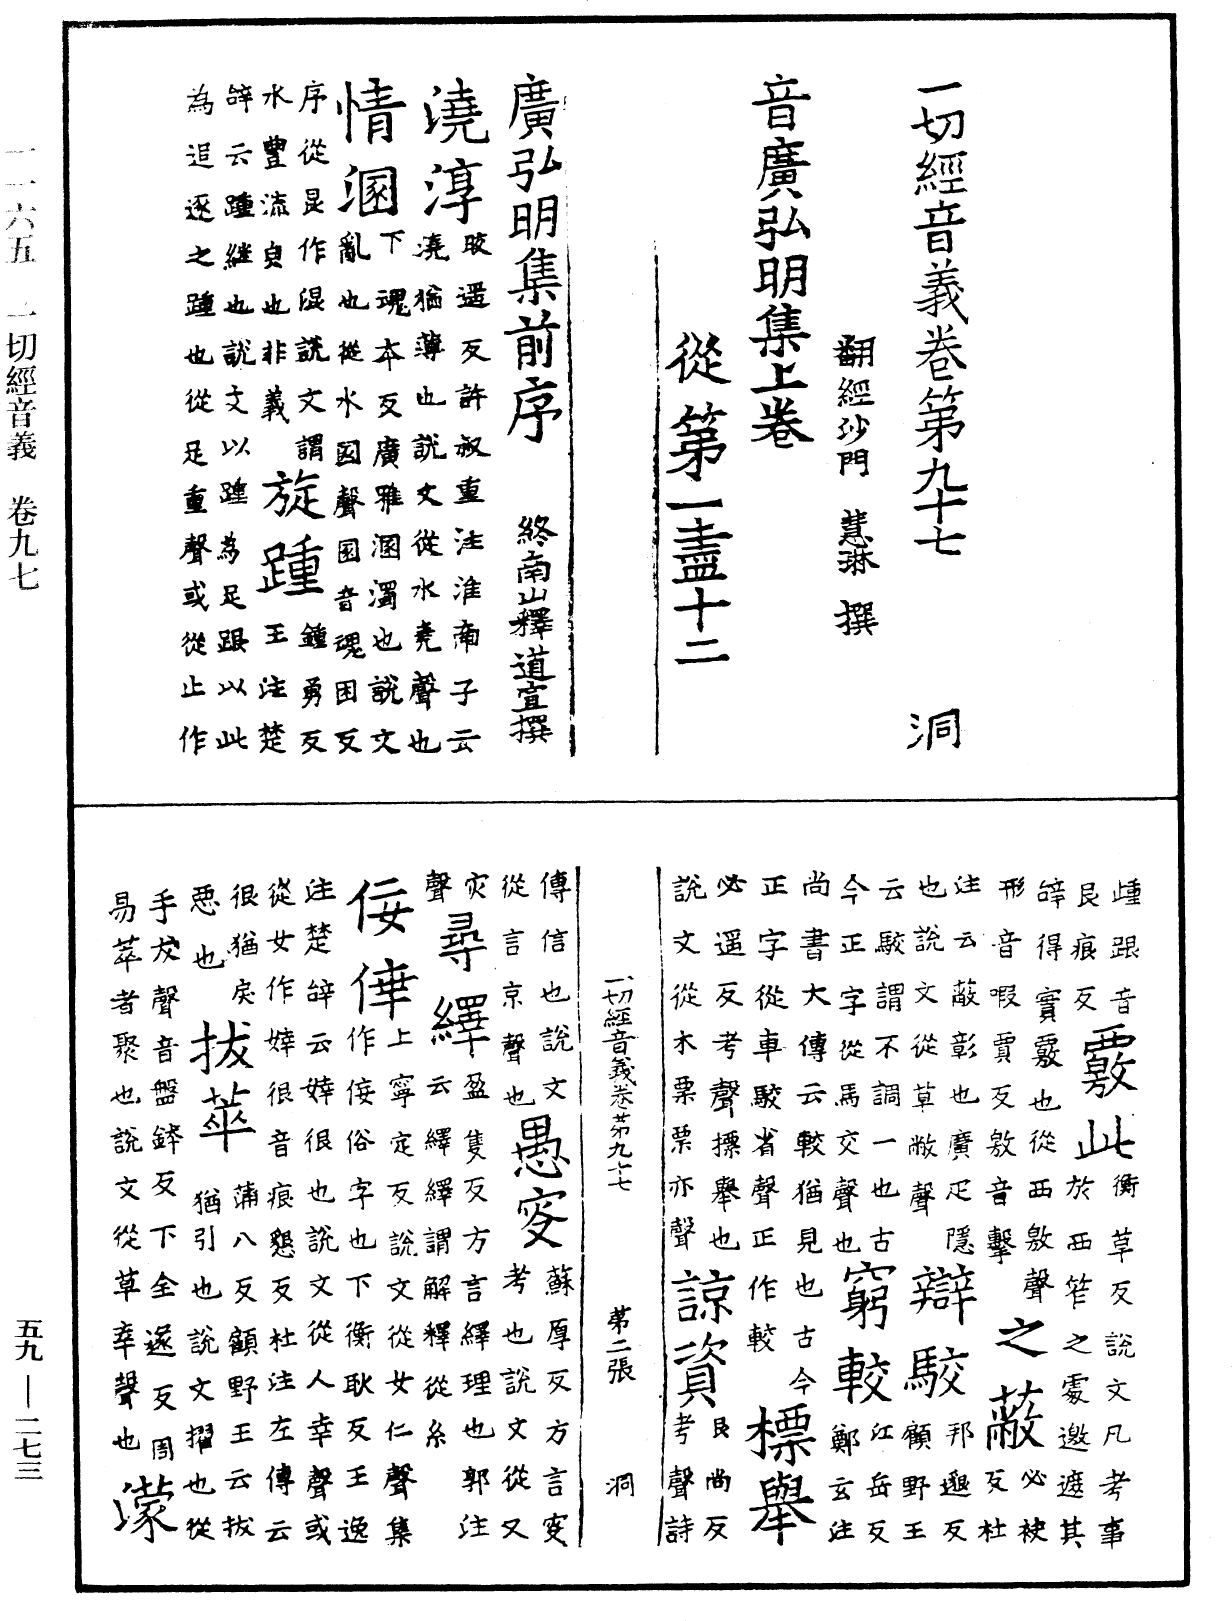 一切經音義卷第九十七　洞
翻經沙門　慧琳　撰
音廣弘明集上卷
從第一盡十二
廣弘明集前序　終南山釋道宣撰
澆淳　咬遥反許叔重注淮南子云
澆猶薄也說文從水堯聲也
情溷　下魂本反廣雅溷濁也說文
亂也從水圂聲圂音魂困反
序從昆作混說文謂
水豐流皃也非義　旋踵　鍾勇反
王注楚
辝云踵繼也說文以踵為足跟以此
為追逐之踵也從足重聲或從止作
歱跟音
艮痕反　覈此　衡草反說文凡考事
於西笮之處邀遮其
辝得實覈也從西敫聲
形音暇賈反敫音擊　之蔽　必袂
反杜
注云蔽彰也廣疋隱
也說文從草敝聲　辯駮　邦邈反
顧野王
云駮謂不調一也古
今正字從馬交聲也　窮較　江岳反
鄭玄注
尚書大傳云較猶見也古今
正字從車駮省聲正作較　標舉
必遥反考聲摽舉也
說文從木票票亦聲　諒資　良尚反
考聲詩
傳信也說文
從言京聲也　愚叜　蘇厚反方言叜
考也說文從又
灾
聲　尋繹　盈隻反方言繹理也郭注
云繹繹謂解釋從糸
佞倖　上寧定反說文從女仁聲集
作佞俗字也下衡耿反王逸
注楚辝云婞很也說文從人幸聲或
從女作婞很音痕懇反杜注左傳云
很猶戾
悪也　拔萃　蒲八反顧野王云拔
猶引也說文擢也從
手犮聲音盤鉢反下全遂反周
易萃者聚也說文從草卒聲也　濛
一切經音義卷第九十七　第二張　洞
一一六五　一切經音義　卷九七
五九—二七三